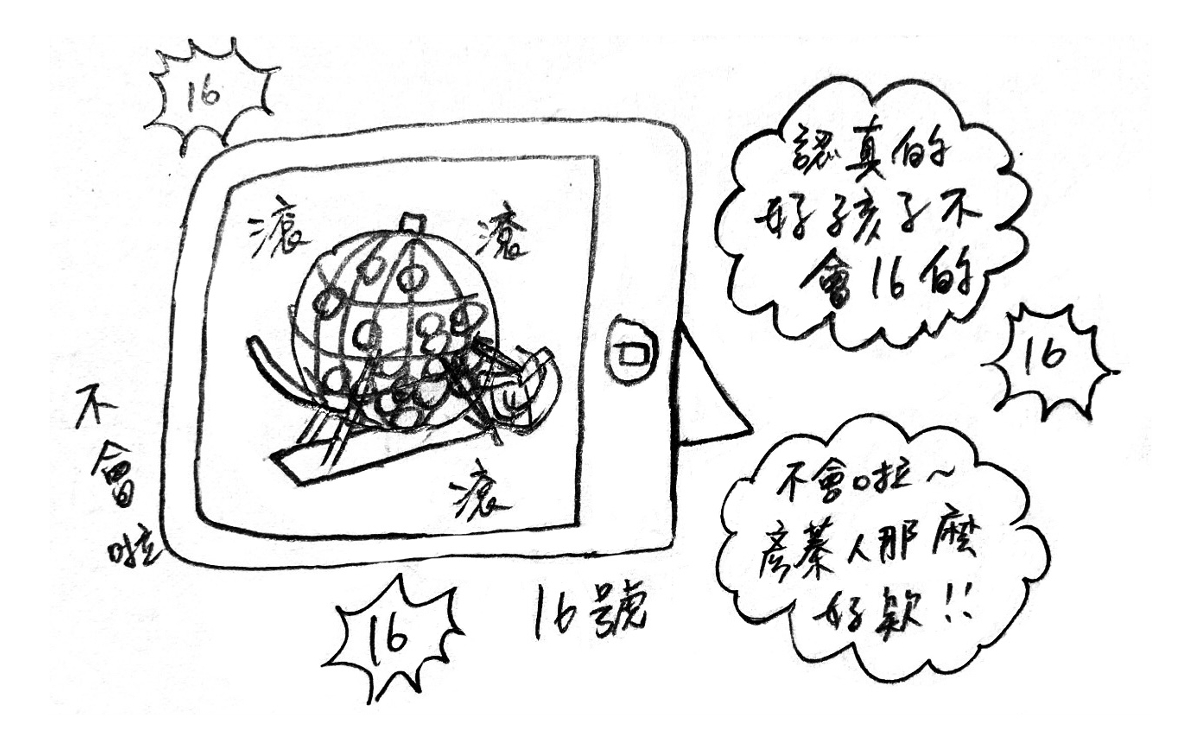 16
認真的
好孩子不
會16的
滾
滾
滾
16
不
會
啦
不會啦~
彥蓁人那麼
好欸!!
16號
16